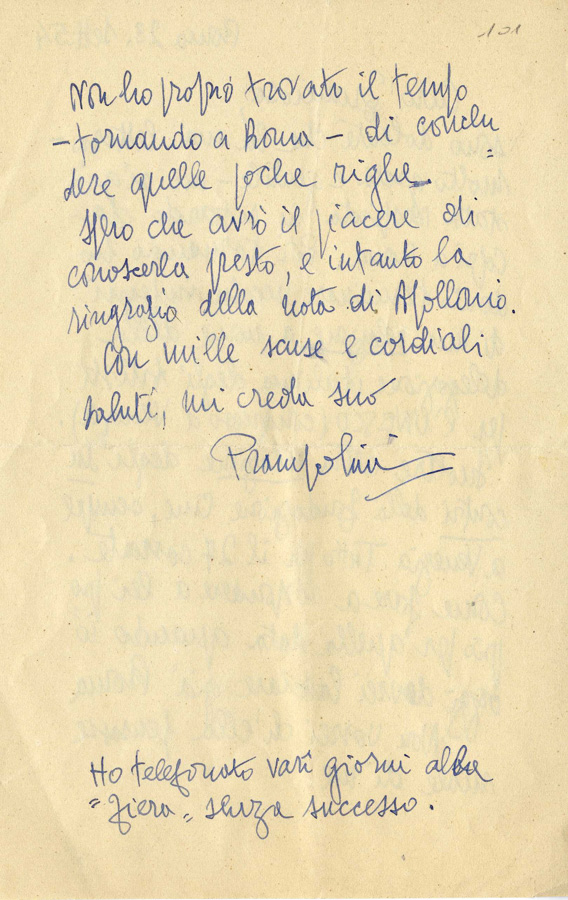 101
Non ho proprio trovato il tempo
– tornando a Roma – di conclu=
dere quelle poche righe.
Spero che avrò il piacere di
conoscerla presto, e intanto la
ringrazio della nota di Apollonio.
Con mille scuse e cordiali
saluti, mi creda suo
Prampolini
Ho telefonato vari giorni alla
"Fiera" senza successo.